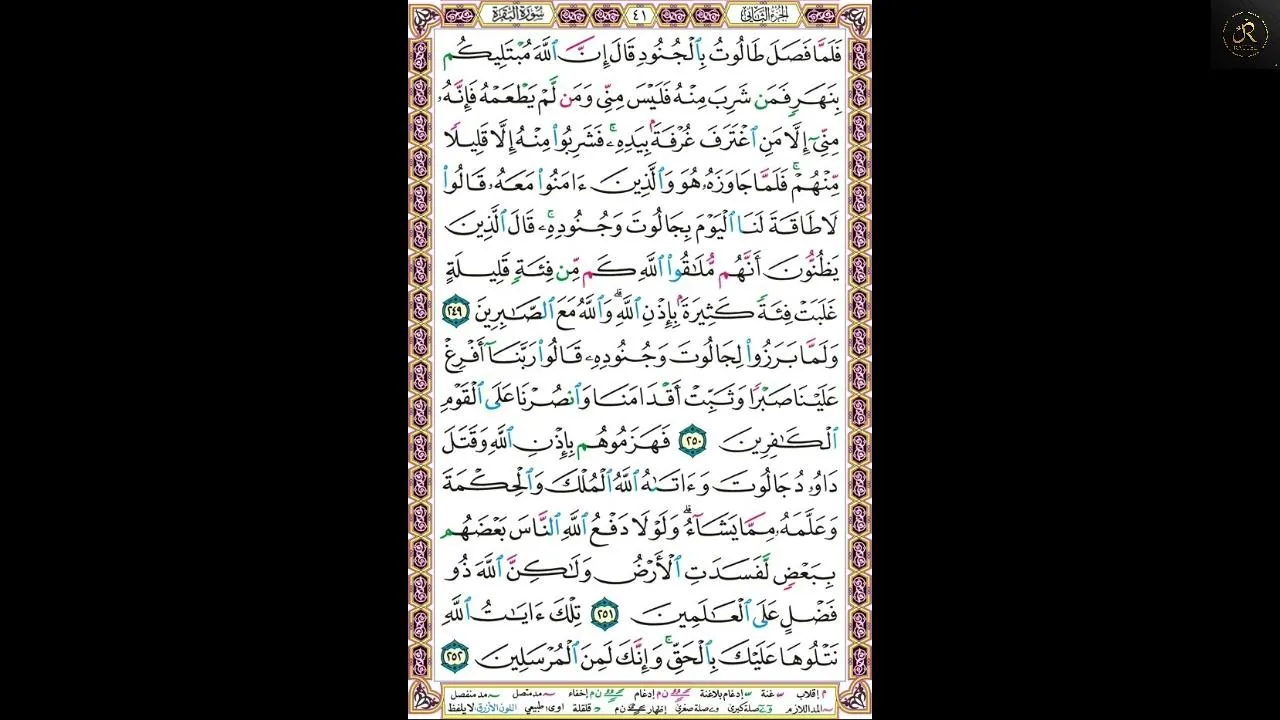 الجزء الثاني
٤١
سورة البقرة
فَلَمَّا فَصَلَ طَالُوتُ بِٱلْجُنُودِ قَالَ إِنَّ ٱللَّهَ مُبْتَلِيكُم
بِنَهَرٍ فَمَن شَرِبَ مِنْهُ فَلَيْسَ مِنِّي وَمَن لَّمْ يَطْعَمْهُ فَإِنَّهُۥ
مِنِّيٓ إِلَّا مَنِ ٱغْتَرَفَ غُرْفَةًۢ بِيَدِهِۦۚ فَشَرِبُوا۟ مِنْهُ إِلَّا قَلِيلًا
مِّنْهُمْۚ فَلَمَّا جَاوَزَهُۥ هُوَ وَٱلَّذِينَ ءَامَنُوا۟ مَعَهُۥ قَالُوا۟
لَا طَاقَةَ لَنَا ٱلْيَوْمَ بِجَالُوتَ وَجُنُودِهِۦۚ قَالَ ٱلَّذِينَ
يَظُنُّونَ أَنَّهُم مُّلَٰقُوا۟ ٱللَّهِ كَم مِّن فِئَةٍ قَلِيلَةٍ
غَلَبَتْ فِئَةً كَثِيرَةًۢ بِإِذْنِ ٱللَّهِۗ وَٱللَّهُ مَعَ ٱلصَّٰبِرِينَ ٢٤٩
وَلَمَّا بَرَزُوا۟ لِجَالُوتَ وَجُنُودِهِۦ قَالُوا۟ رَبَّنَآ أَفْرِغْ
عَلَيْنَا صَبْرًا وَثَبِّتْ أَقْدَامَنَا وَٱنصُرْنَا عَلَى ٱلْقَوْمِ
ٱلْكَٰفِرِينَ ٢٥٠ فَهَزَمُوهُم بِإِذْنِ ٱللَّهِ وَقَتَلَ
دَاوُۥدُ جَالُوتَ وَءَاتَىٰهُ ٱللَّهُ ٱلْمُلْكَ وَٱلْحِكْمَةَ
وَعَلَّمَهُۥ مِمَّا يَشَآءُۗ وَلَوْلَا دَفْعُ ٱللَّهِ ٱلنَّاسَ بَعْضَهُم
بِبَعْضٍ لَّفَسَدَتِ ٱلْأَرْضُ وَلَٰكِنَّ ٱللَّهَ ذُو
فَضْلٍ عَلَى ٱلْعَٰلَمِينَ ٢٥١ تِلْكَ ءَايَٰتُ ٱللَّهِ
نَتْلُوهَا عَلَيْكَ بِٱلْحَقِّۚ وَإِنَّكَ لَمِنَ ٱلْمُرْسَلِينَ ٢٥٢
م إقلاب غنة إدغام بلاغنة ن م إدغام ن م إخفاء مد متصل مد منفصل
المد اللازم صلة كبرى صلة صغرى إظهار ن م قلقلة اوى طبيعي اللون الأزرق لا يلفظ